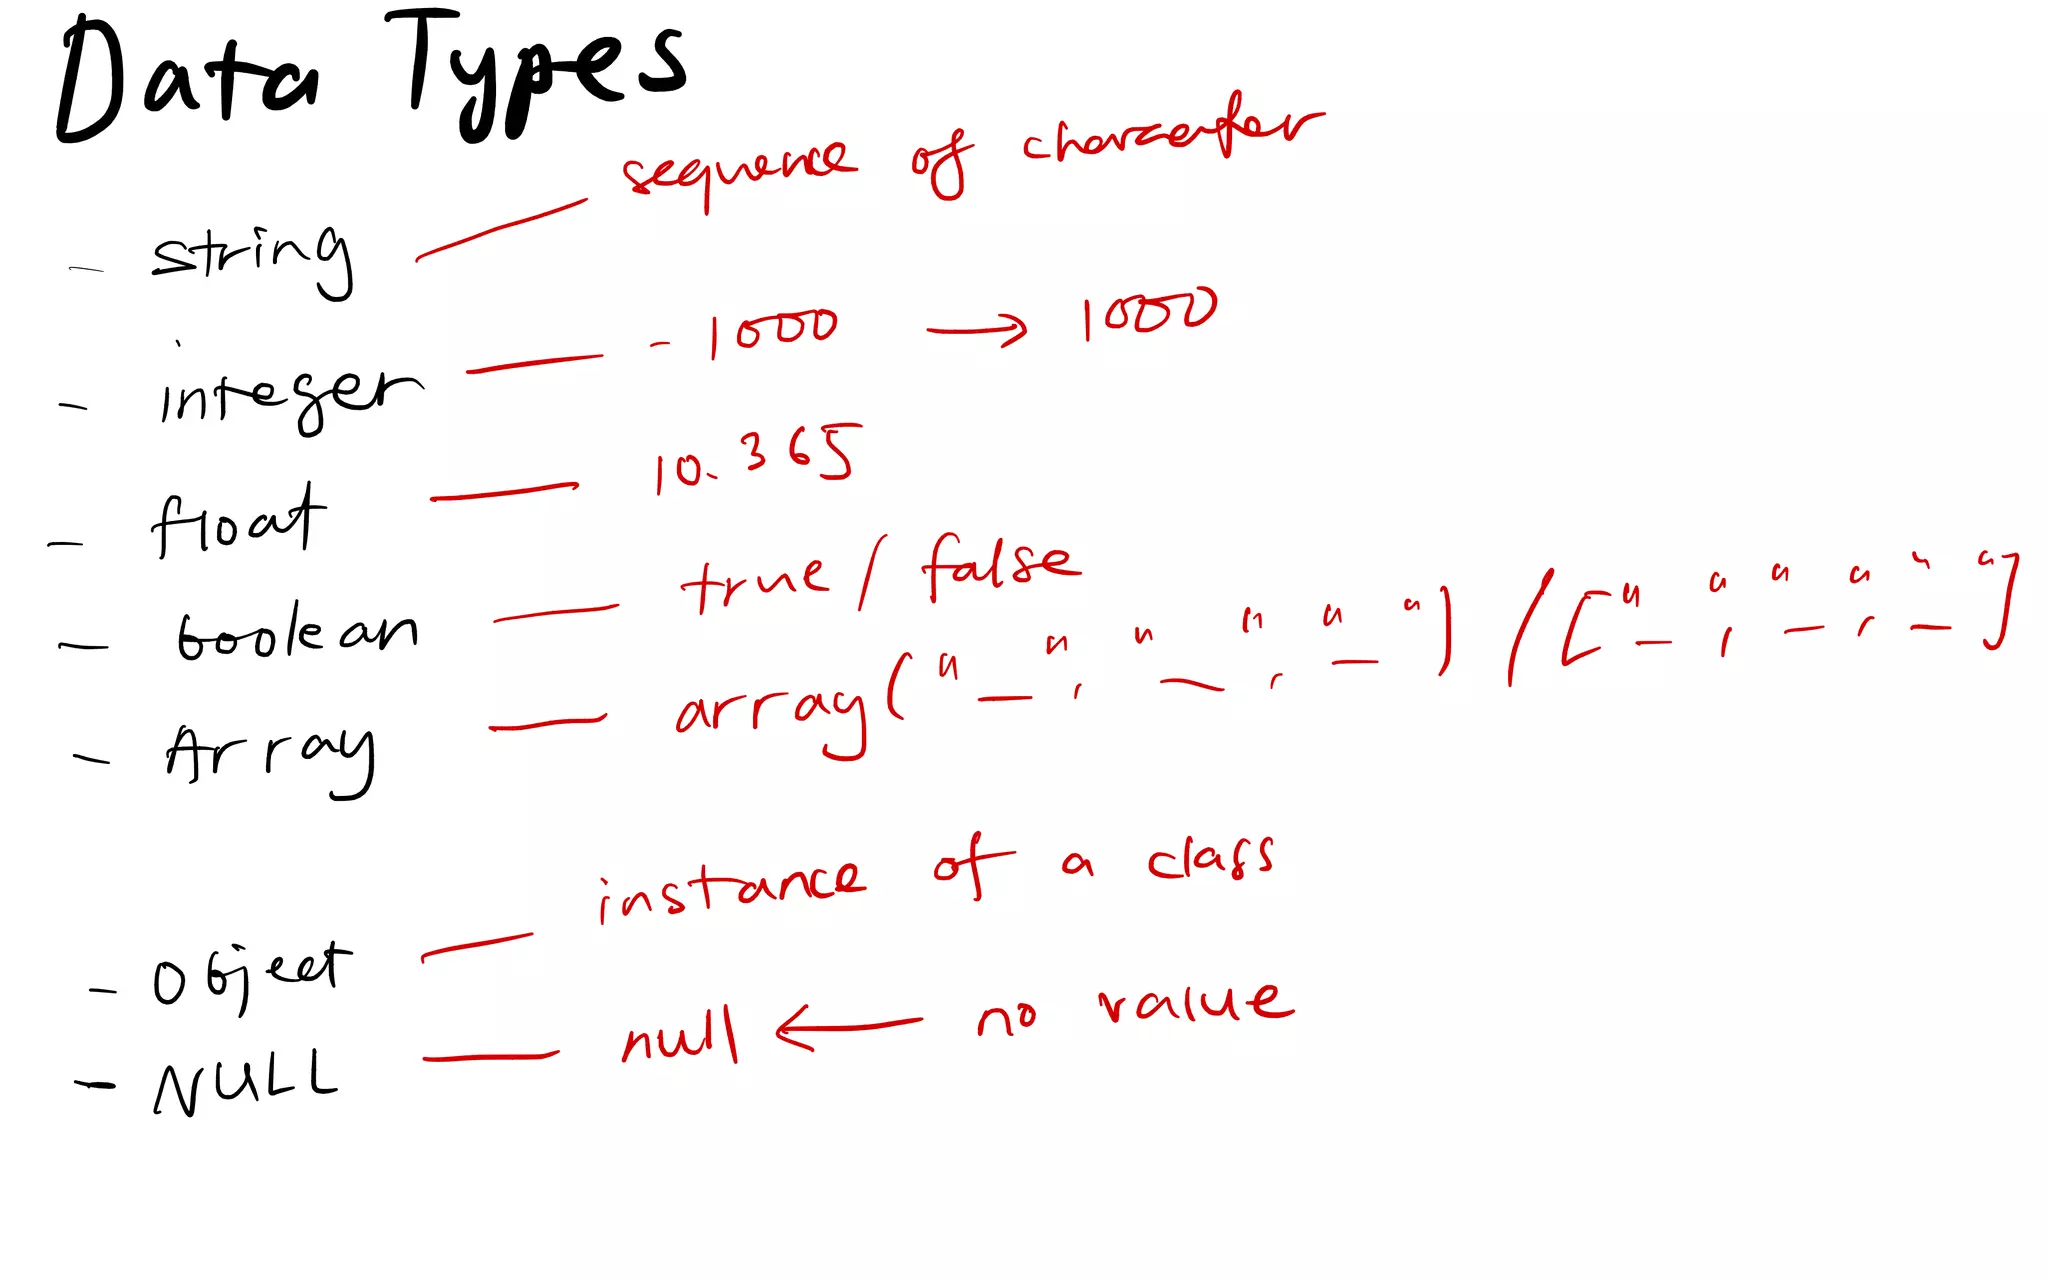 Data Types
- string — sequence of character
- integer — - 1000 → 1000
- float — 10.365
- boolean — true / false
- Array — array("_", "_", "_") / ["_", "_", "_"]
- Object — instance of a class
- NULL — null ← no value